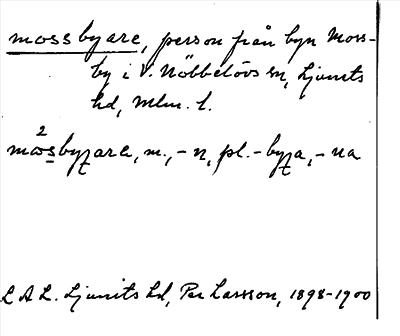 mossbyare, person från byn Moss-
by i V. Nöbbelövs sn, Ljunits
hd, Mlm. l.
2
måsbyʒarɐ, m., -n, pl. -byʒa, -na
L A L. Ljunits hd, Per Larsson, 1898-1900